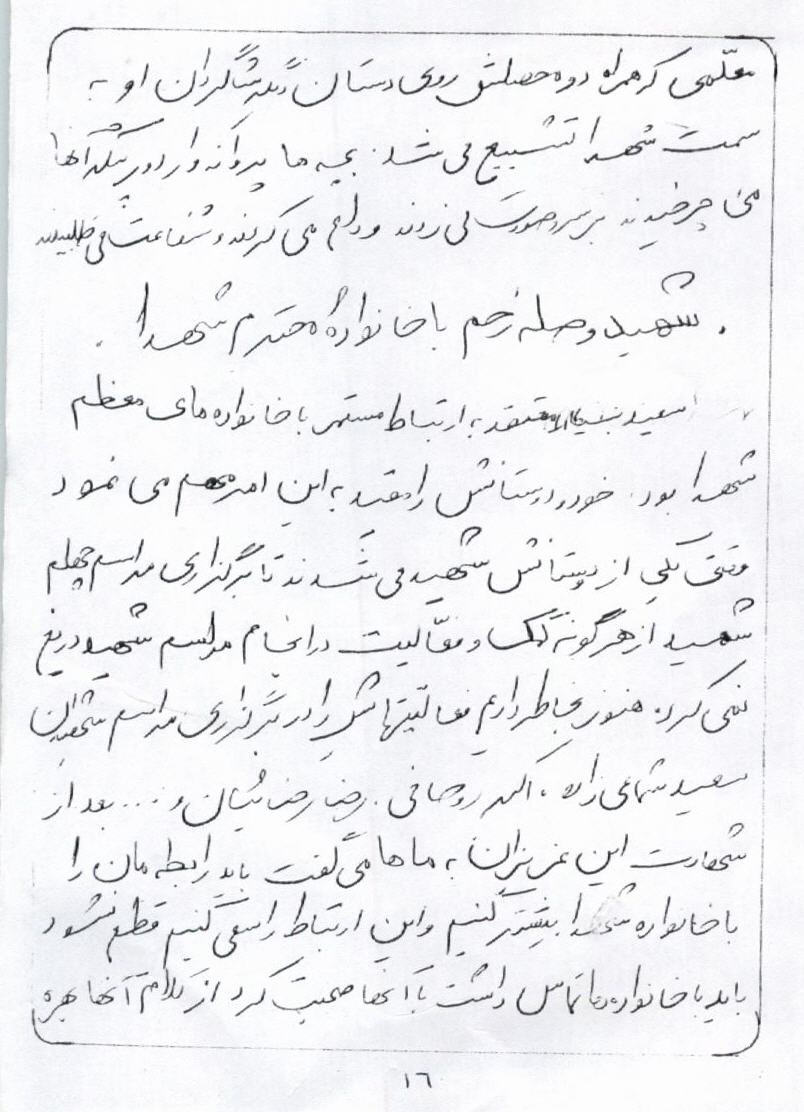 معلّمی که همراه دوه حصلتش روی دستان دیگر شاگردان او به
سمت شهدا تشییع می شد. بچه ها پروانه وار دور پیکر آنها
می چرخیدند بر سر و صورت می زدند وداع می کردند و شفاعت می طلبیدند
. شهید وصله رحم با خانوادهٔ محترم شهدا .
سعید معتقد به ارتباط مستمر با خانواده های معظم
شهدا بود. خود و دوستانش را مقید به این امر مهم می نمود
وقتی یکی از دوستانش شهید می شدند تا برگزاری مراسم چهلم
شهید از هرگونه کمک و فعّالیت در انجام مراسم شهید دریغ
نمی کرد. هنوز بخاطر داریم فعالیتهایش را در برگزاری مراسم شهیدان
سعید شماعی زاده ، اکبر روحانی . رضا رضائیان و ... بعد از
شهادت این عزیزان به ماها می گفت باید رابطه مان را
با خانواده شهدا بیشتر کنیم و این ارتباط را سعی کنیم قطع نشود
باید با خانواده ها تماس داشت با آنها صحبت کرد از کلام آنها بهره
١٦